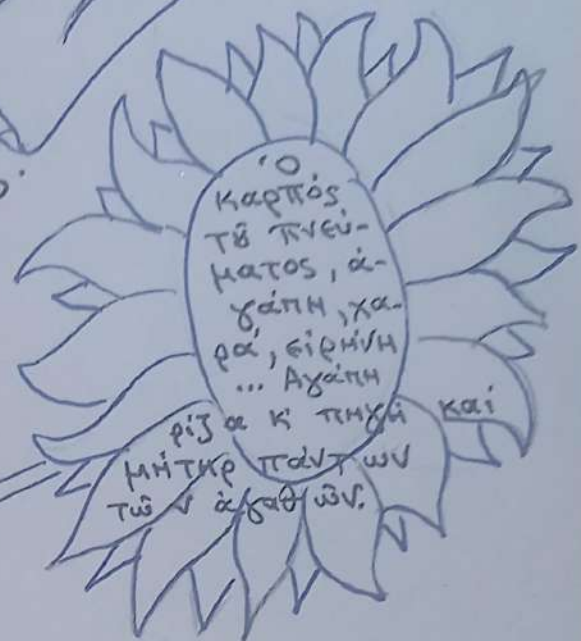 Ὁ
καρπός
τȣ͂ πνεύ-
ματος, ἀ-
γάπη, χα-
ρά, εἰρήνη
... Αγάπη
ρίζα κ' πηγή καί
μήτηρ πάντων
τῶν ἀγαθῶν.